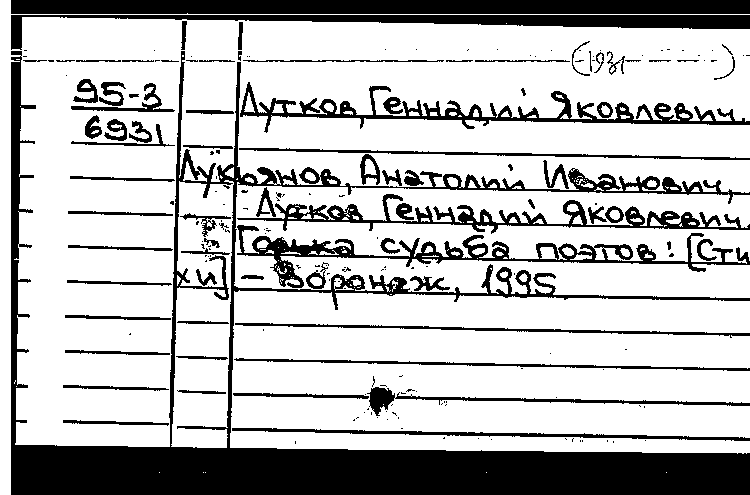 (1931 - )
95-3
6931
Лутков, Геннадий Яковлевич.
Лукьянов, Анатолий Иванович,
Лутков, Геннадий Яковлевич.
Горька судьба поэтов: [Сти
хи] - Воронеж, 1995